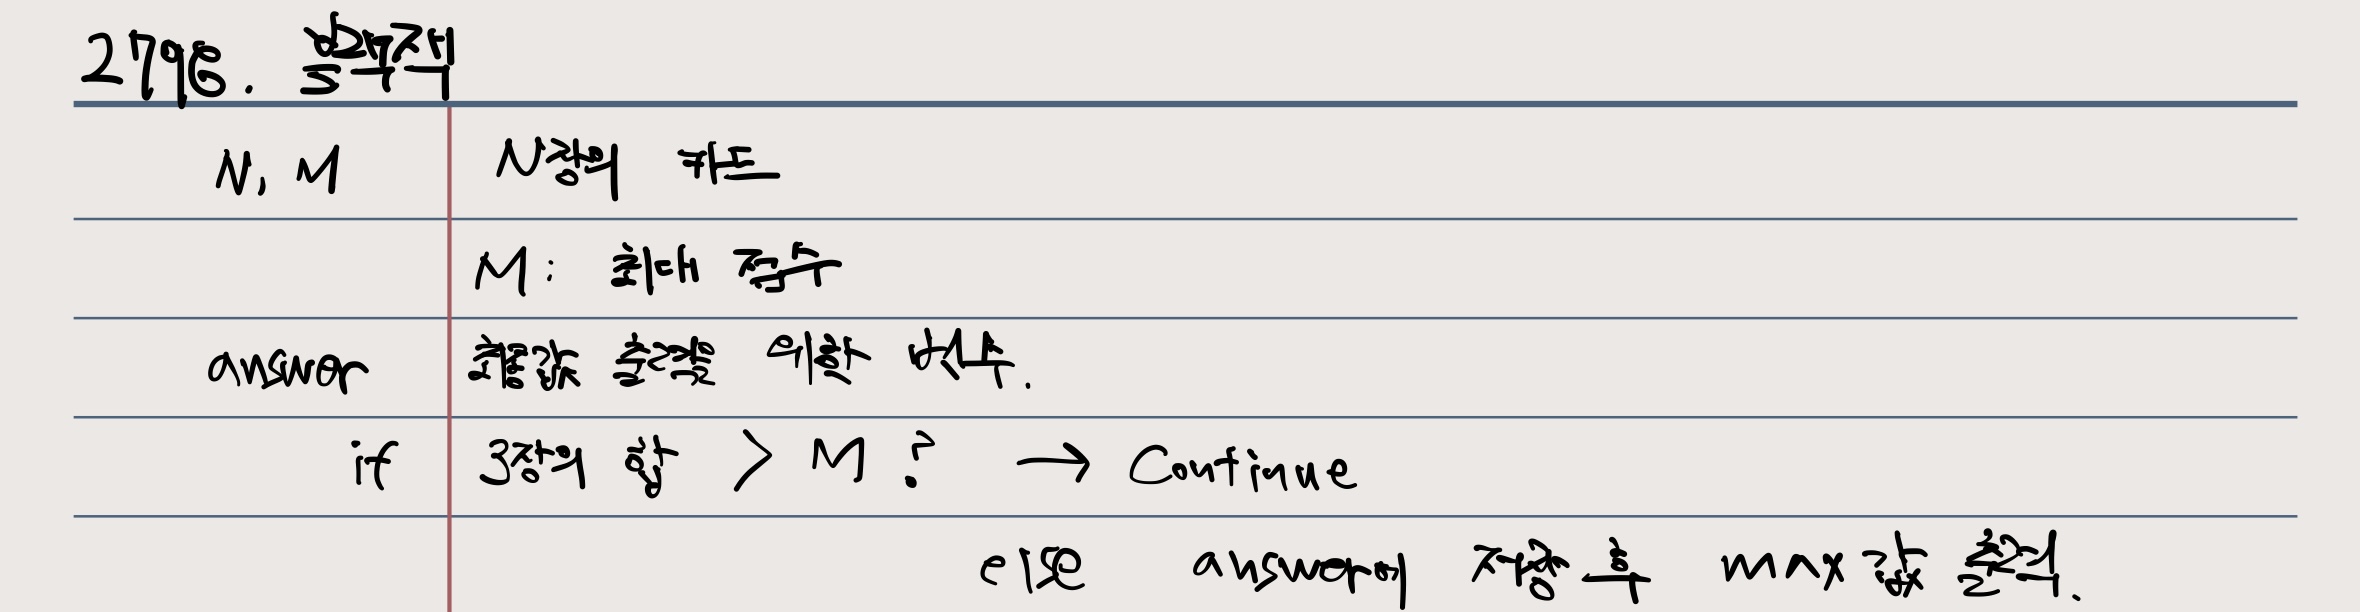 2798. 블랙잭
N, M N장의 카드
M: 최대 점수
answer 최종값 출력을 위한 변수.
if 3장의 합 > M? → Continue
else answer에 저장 후 max값 출력.